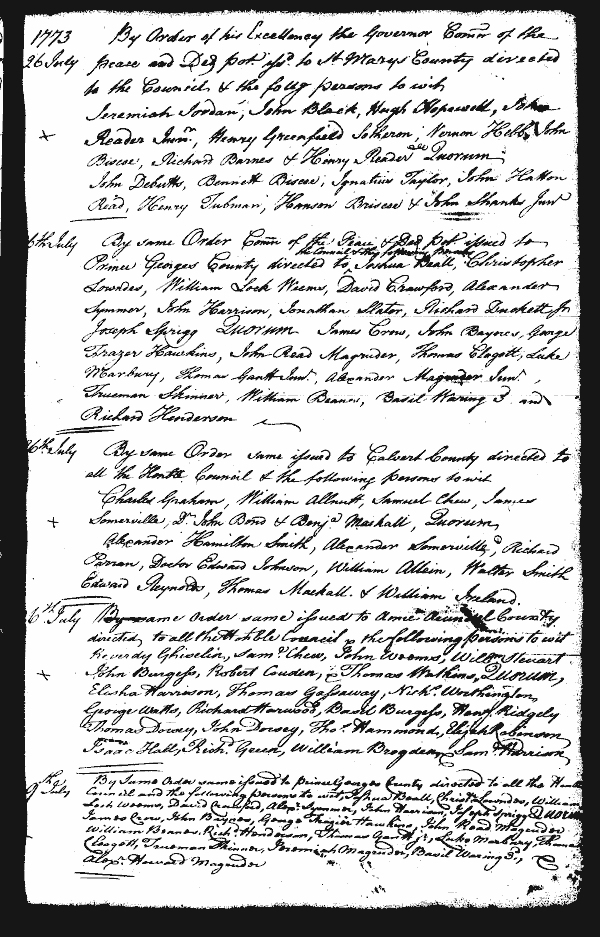 1773 By Order of his Excellency the Governor Comn of the
26 July peace and Ded. pot. issd. to St Marys County directed
to the Council, & the follg persons to wit
Jeremiah Jordan, John Black, Hugh Hopewell, John
+ Reader Junr., Henry Greenfield Sotheron, Vernon Hebb, John
Biscoe, Richard Barnes & Henry Reader Quorum
John Debutts, Bennett Biscoe, Ignatius Taylor, John Hatton
Read, Henry Tubman, Hanson Briscoe & John Shanks Junr
6th July By same Order Comn of the Peace & Ded. pot. issued to
the Council & the following persons
Prince Georges County directed to Joshua Beall, Christopher
Lowndes, William Lock Weems, David Crawford, Alexander
Symmer, John Harrison, Jonathan Slater, Richard Duckett Jr
Joseph Sprigg Quorum James Crow, John Baynes, George
Frazer Hawkins, John Read Magruder, Thomas Clagett, Luke
Marbury, Thomas Gantt Junr., Alexander Magruder Junr.,
Trueman Skinner, William Beanes, Basil Waring 3d and
Richard Henderson
26th July By same Order same issued to Calvert County directed to
all the Honble Council & the following persons to wit
Charles Graham, William Allnutt, Samuel Chew, James
+ Somerville, Dr. John Bond & Benja Mackall, Quorum
Alexander Hamilton Smith, Alexander Somerville, Richard
Parran, Doctor Edward Johnson, William Allein, Walter Smith
Edward Reynolds, Thomas Mackall & William Ireland.
6th July By same order same issued to Anne Arundel County
directed to all the Honble Council & the following persons to wit
Reverdy Ghiselin, Saml. Chew, John Weems, Willm Steuart
+ John Burgess, Robert Couden, & Thomas Watkins, Quorum,
Elisha Harrison, Thomas Gassaway, Nichs. Worthington,
George Watts, Richard Harwood, Basil Burgess, Henry Ridgely
Thomas Dorsey, John Dorsey, Thos. Hammond, Elijah Robinson
Isaac Hall, Richd. Green, William Brogden, Saml Harrison,
9th July By Same Order same issued to Prince Georges County directed to all the Honble
Council and the following persons to wit, Joshua Beall, Christr. Lowndes, William
Lock Weems, David Crawford, Alexr. Symmer, John Harrison, Joseph Sprigg Quorum
James Crow, John Baynes, George Frazier Hawkins, John Read Magruder
William Beanes, Richd. Henderson, Thomas Gantt Jr., Luke Marbury, Thomas
Clagett, Trueman Skinner, Jeremiah Magruder, Basil Waring 3d.,
Alexr. Howard Magruder